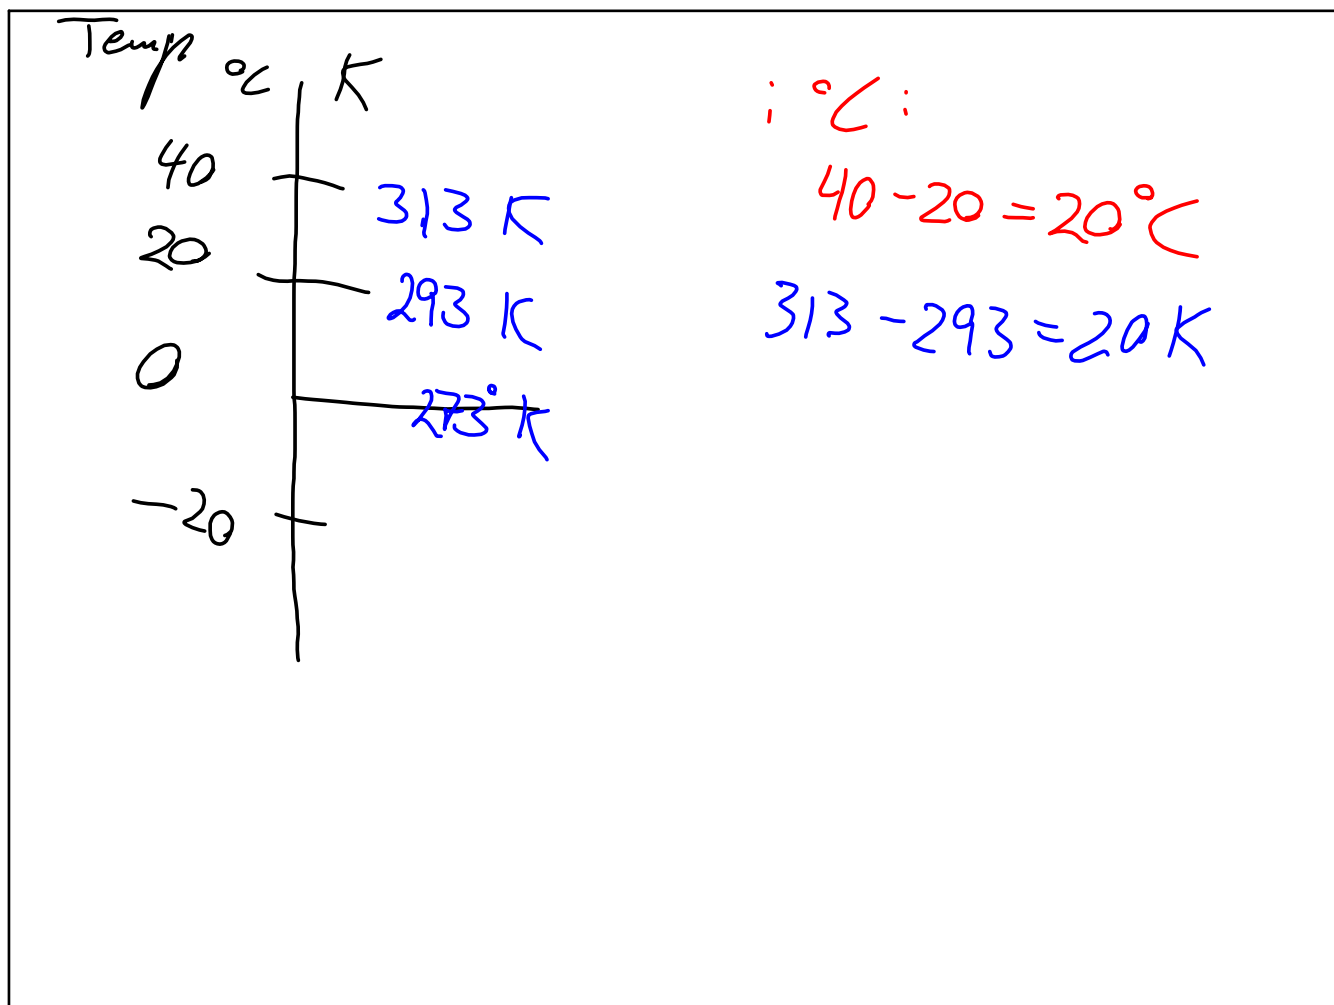 Temp
°C K
40
313 K
20
293 K
0
273° K
-20
i °C :
40 - 20 = 20 °C
313 - 293 = 20 K